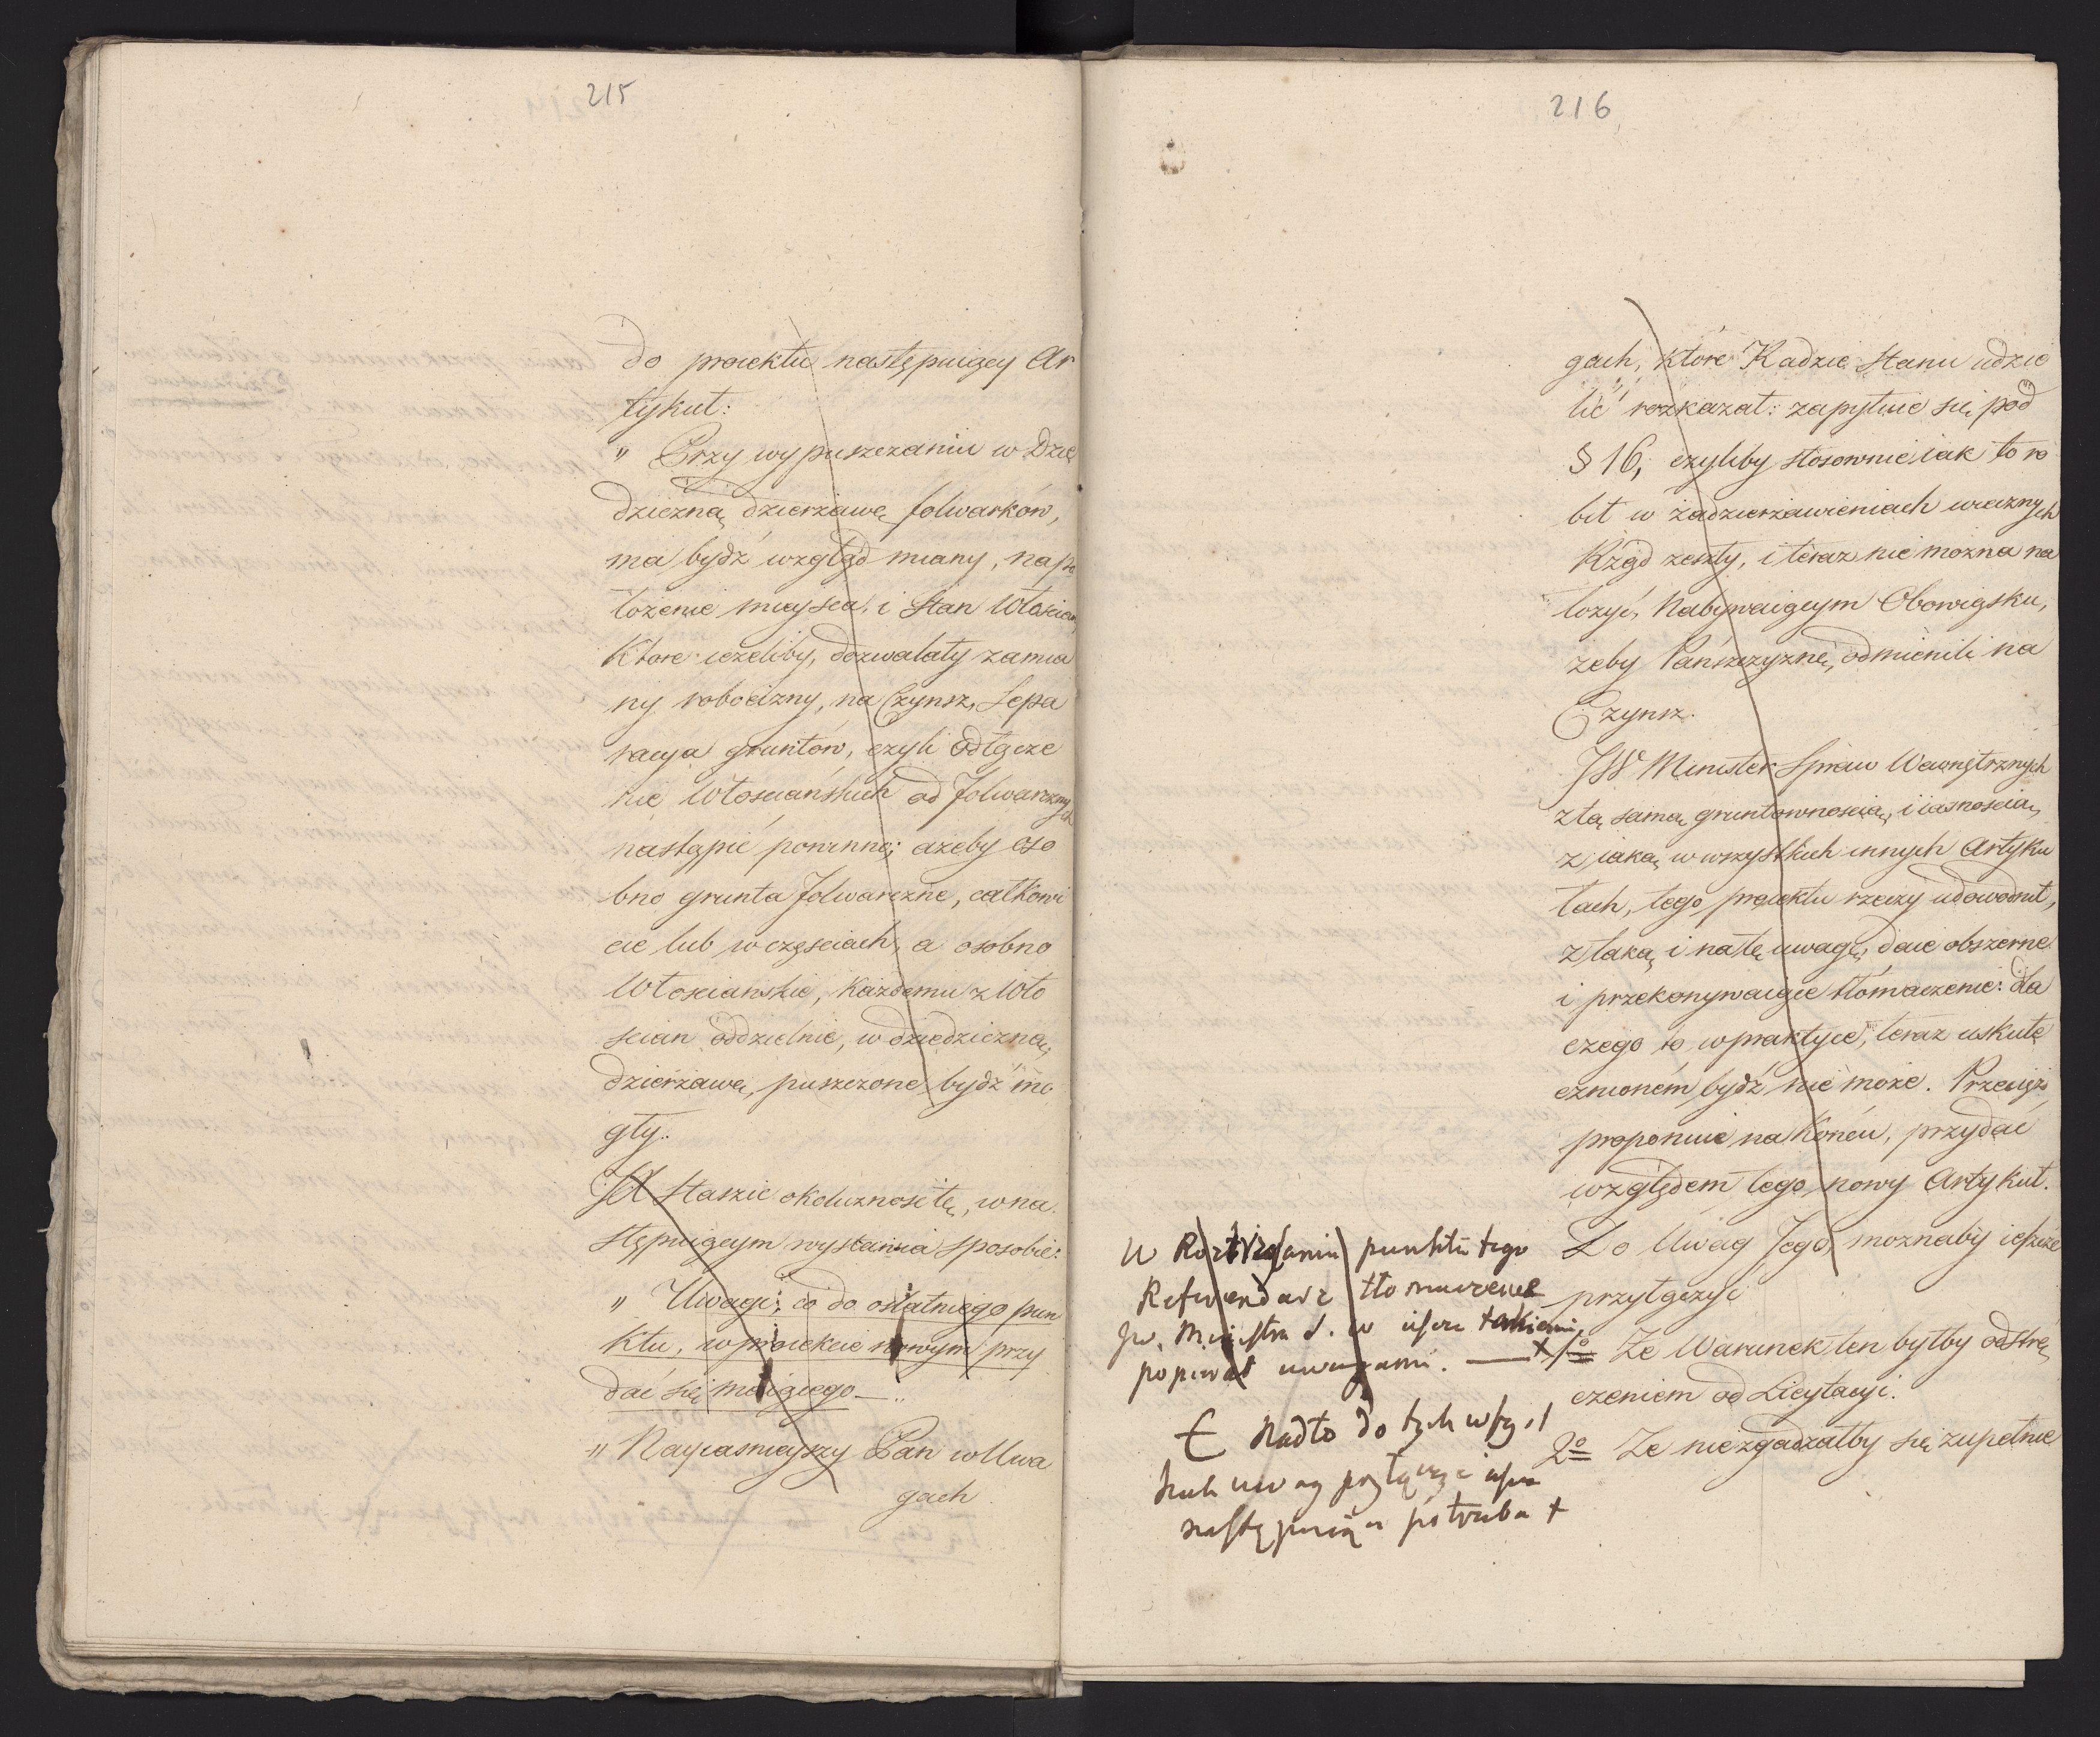 215
do proiektu następuiącey Ar
tykuł:
" Przy wypuszczaniu w Dzie
dziczną dzierżawę folwarków,
ma bydź wzgląd miany, na po
łożenie mieysca, i Stan Włościan,
Ktore ieżeliby, dozwalały zamia
ny robocizny, na Czynsz, Sepa
racya gruntów, czyli odłącze
nie Włościańskich od folwarcznych
nastąpić powinno; ażeby oso
bno grunta folwarczne, całkowi
cie lub w częściach, a osobno
Włościańskie, Każdemu z Wło
ścian oddzielnie, w dziedziczną
dzierżawę, puszczone bydź mo
gły.
JW Staszic okoliczność tę, w na
stępuiącym wystawia sposobie:
" Uwagi; co do ostatniego pun
ktu, w proiekcie nowym przy
dać się maiącego —"
" Nayiaśnieyszy Pan w Uwa
gach
216
gach, które Radzie Stanu udzie
lić rozkazał: zapytuie się pod
§ 16, czyliby stosownie iak to ro
bił w zadzierżawieniach wiecznych
Rząd zeszły, i teraz nie można na
łożyć, Nabywaiącym Obowiązku,
żeby Pańszczyznę, odmienili na
Czynsz.
JW Minister Spraw Wewnętrznych
z tą samą gruntownością, i iasnością,
z iaką w wszystkich innych Artyku
łach, tego proiektu rzeczy udowodnił,
z taką i na tę uwagę, daie obszerne
i przekonywaiące tłómaczenie: dla
czego to w praktyce, teraz uskute
cznionem bydź nie może. Przecięż
proponuie na Końcu, przydać
względem tego, nowy Artykuł.
Do Uwag Jego, możnaby ieszcze
przyłączyć
1o Że Warunek ten byłby odstrę
czeniem od Licytacyi.
2o Że niezgadzałby się zupełnie
W Roztrząsaniu punktu tego
Referendarz tłomaczenie
Jw. Ministra S. w. takiemi
popierał uwagami. — +
Nadto do tych wszyst
kich uwag przyłączyć
następuiąca potrzeba +